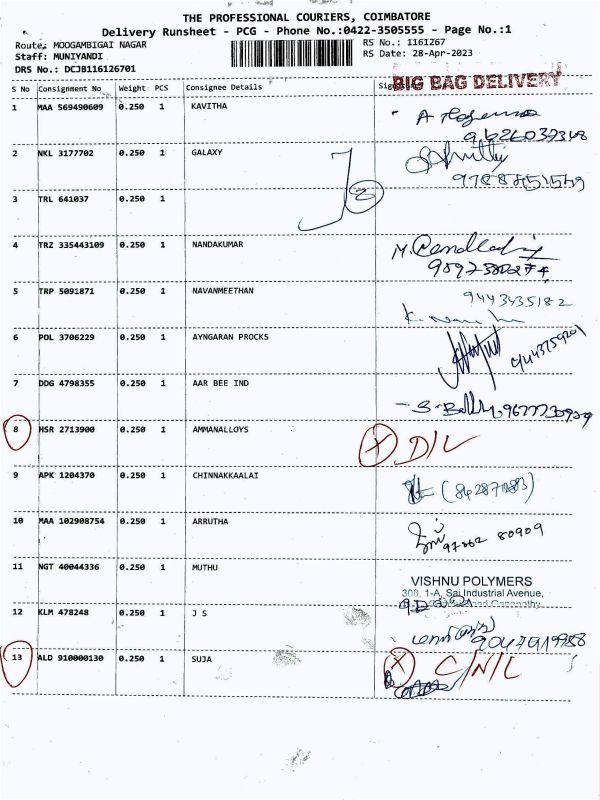 THE PROFESSIONAL COURIERS, COIMBATORE
Delivery Runsheet - PCG - Phone No.:0422-3505555 - Page No.:1
Route: MOOGAMBIGAI NAGAR
RS No.: 1161267
Staff: MUNIYANDI
RS Date: 28-Apr-2023
DRS No.: DCJB116126701
S No Consignment No Weight PCS Consignee Details
BIG BAG DELIVERY
1 MAA 569490609 0.250 1 KAVITHA
2 NKL 3177702 0.250 1 GALAXY
3 TRL 641037 0.250 1
4 TRZ 335443109 0.250 1 NANDAKUMAR
5 TRP 5091871 0.250 1 NAVANMEETHAN
9443435182
6 POL 3706229 0.250 1 AYNGARAN PROCKS
7 DDG 4798355 0.250 1 AAR BEE IND
8 HSR 2713900 0.250 1 AMMANALLOYS
X D/L
9 APK 1204370 0.250 1 CHINNAKKAALAI
10 MAA 102908754 0.250 1 ARRUTHA
97862 80909
11 NGT 40044336 0.250 1 MUTHU
VISHNU POLYMERS
308, 1-A, Sai Industrial Avenue,
12 KLM 478248 0.250 1 J S
9047919988
13 ALD 910000130 0.250 1 SUJA
X C/N/L